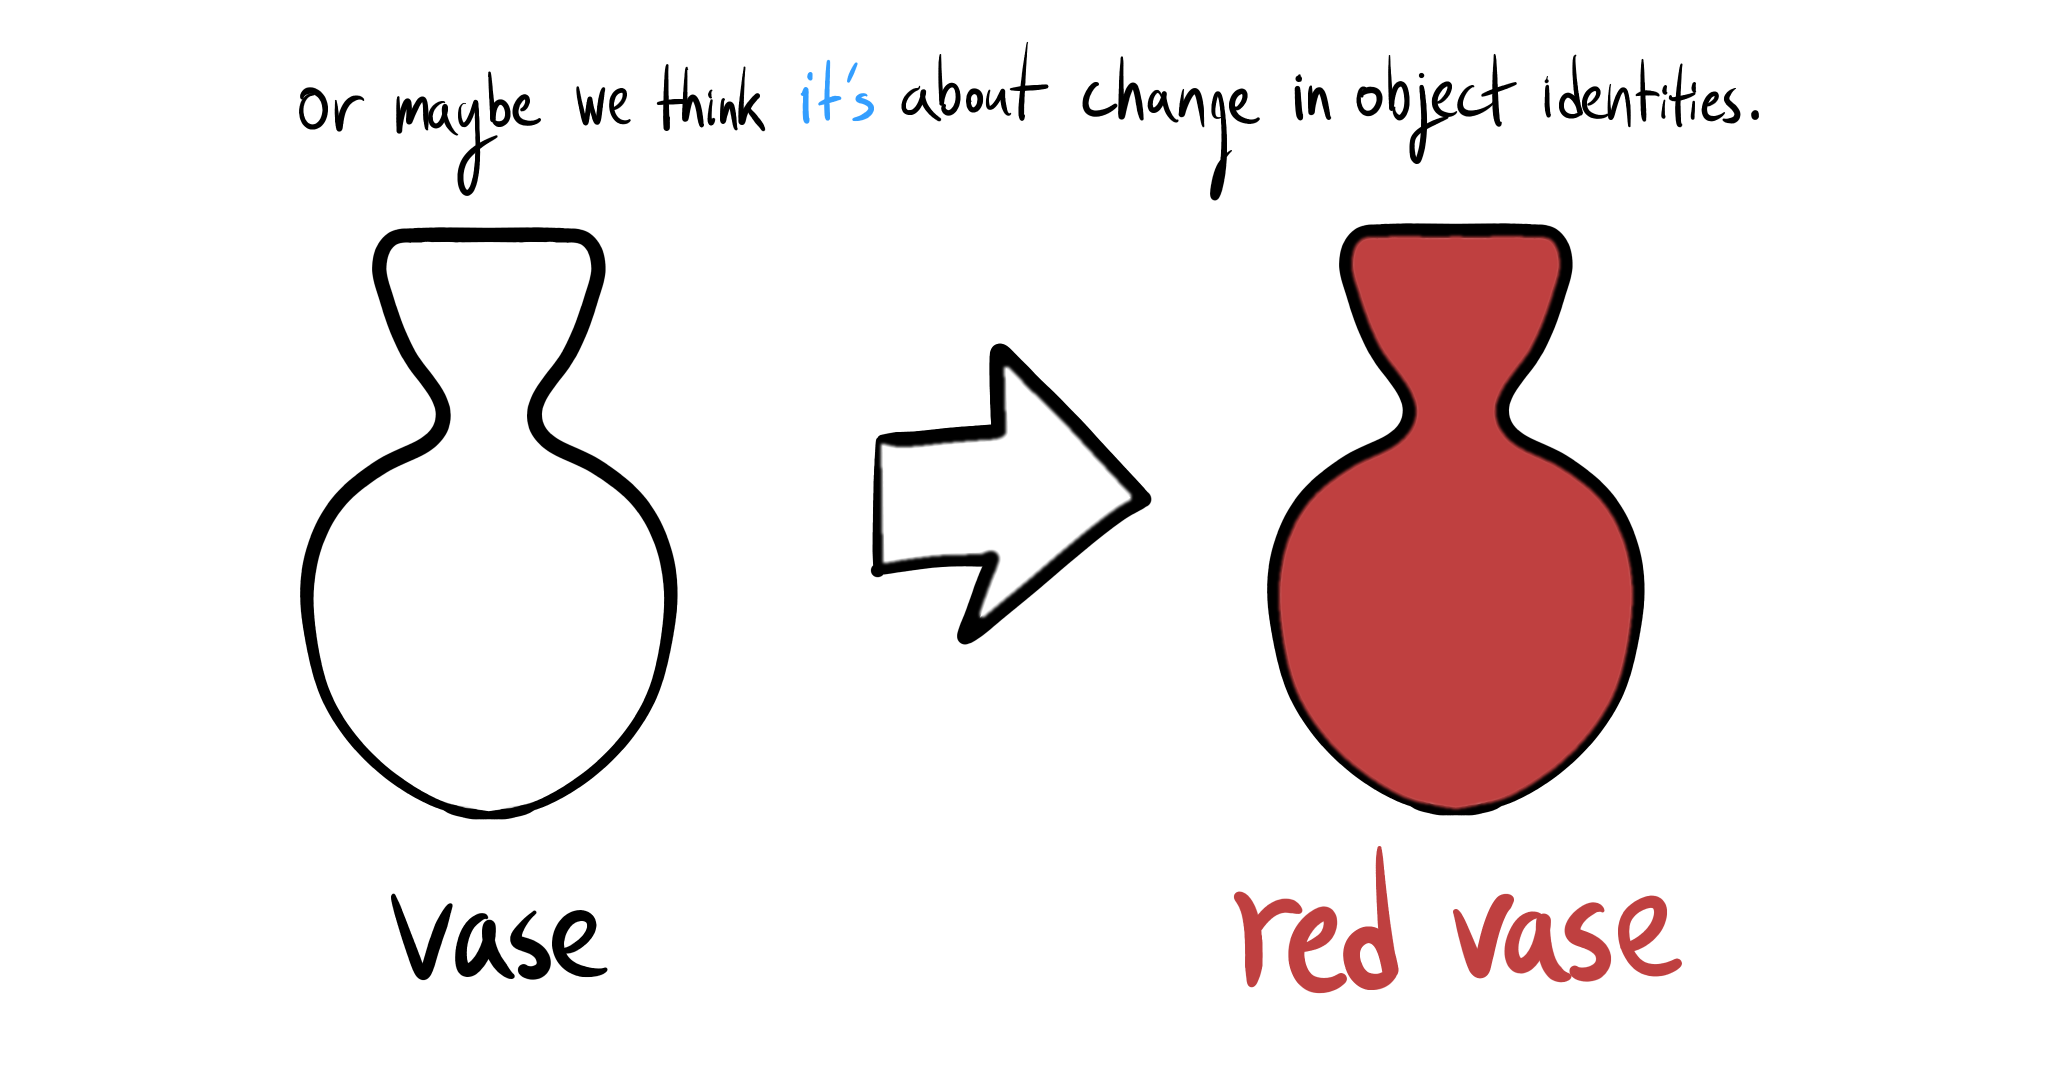 or maybe we think it's about change in object identities.
vase
red vase